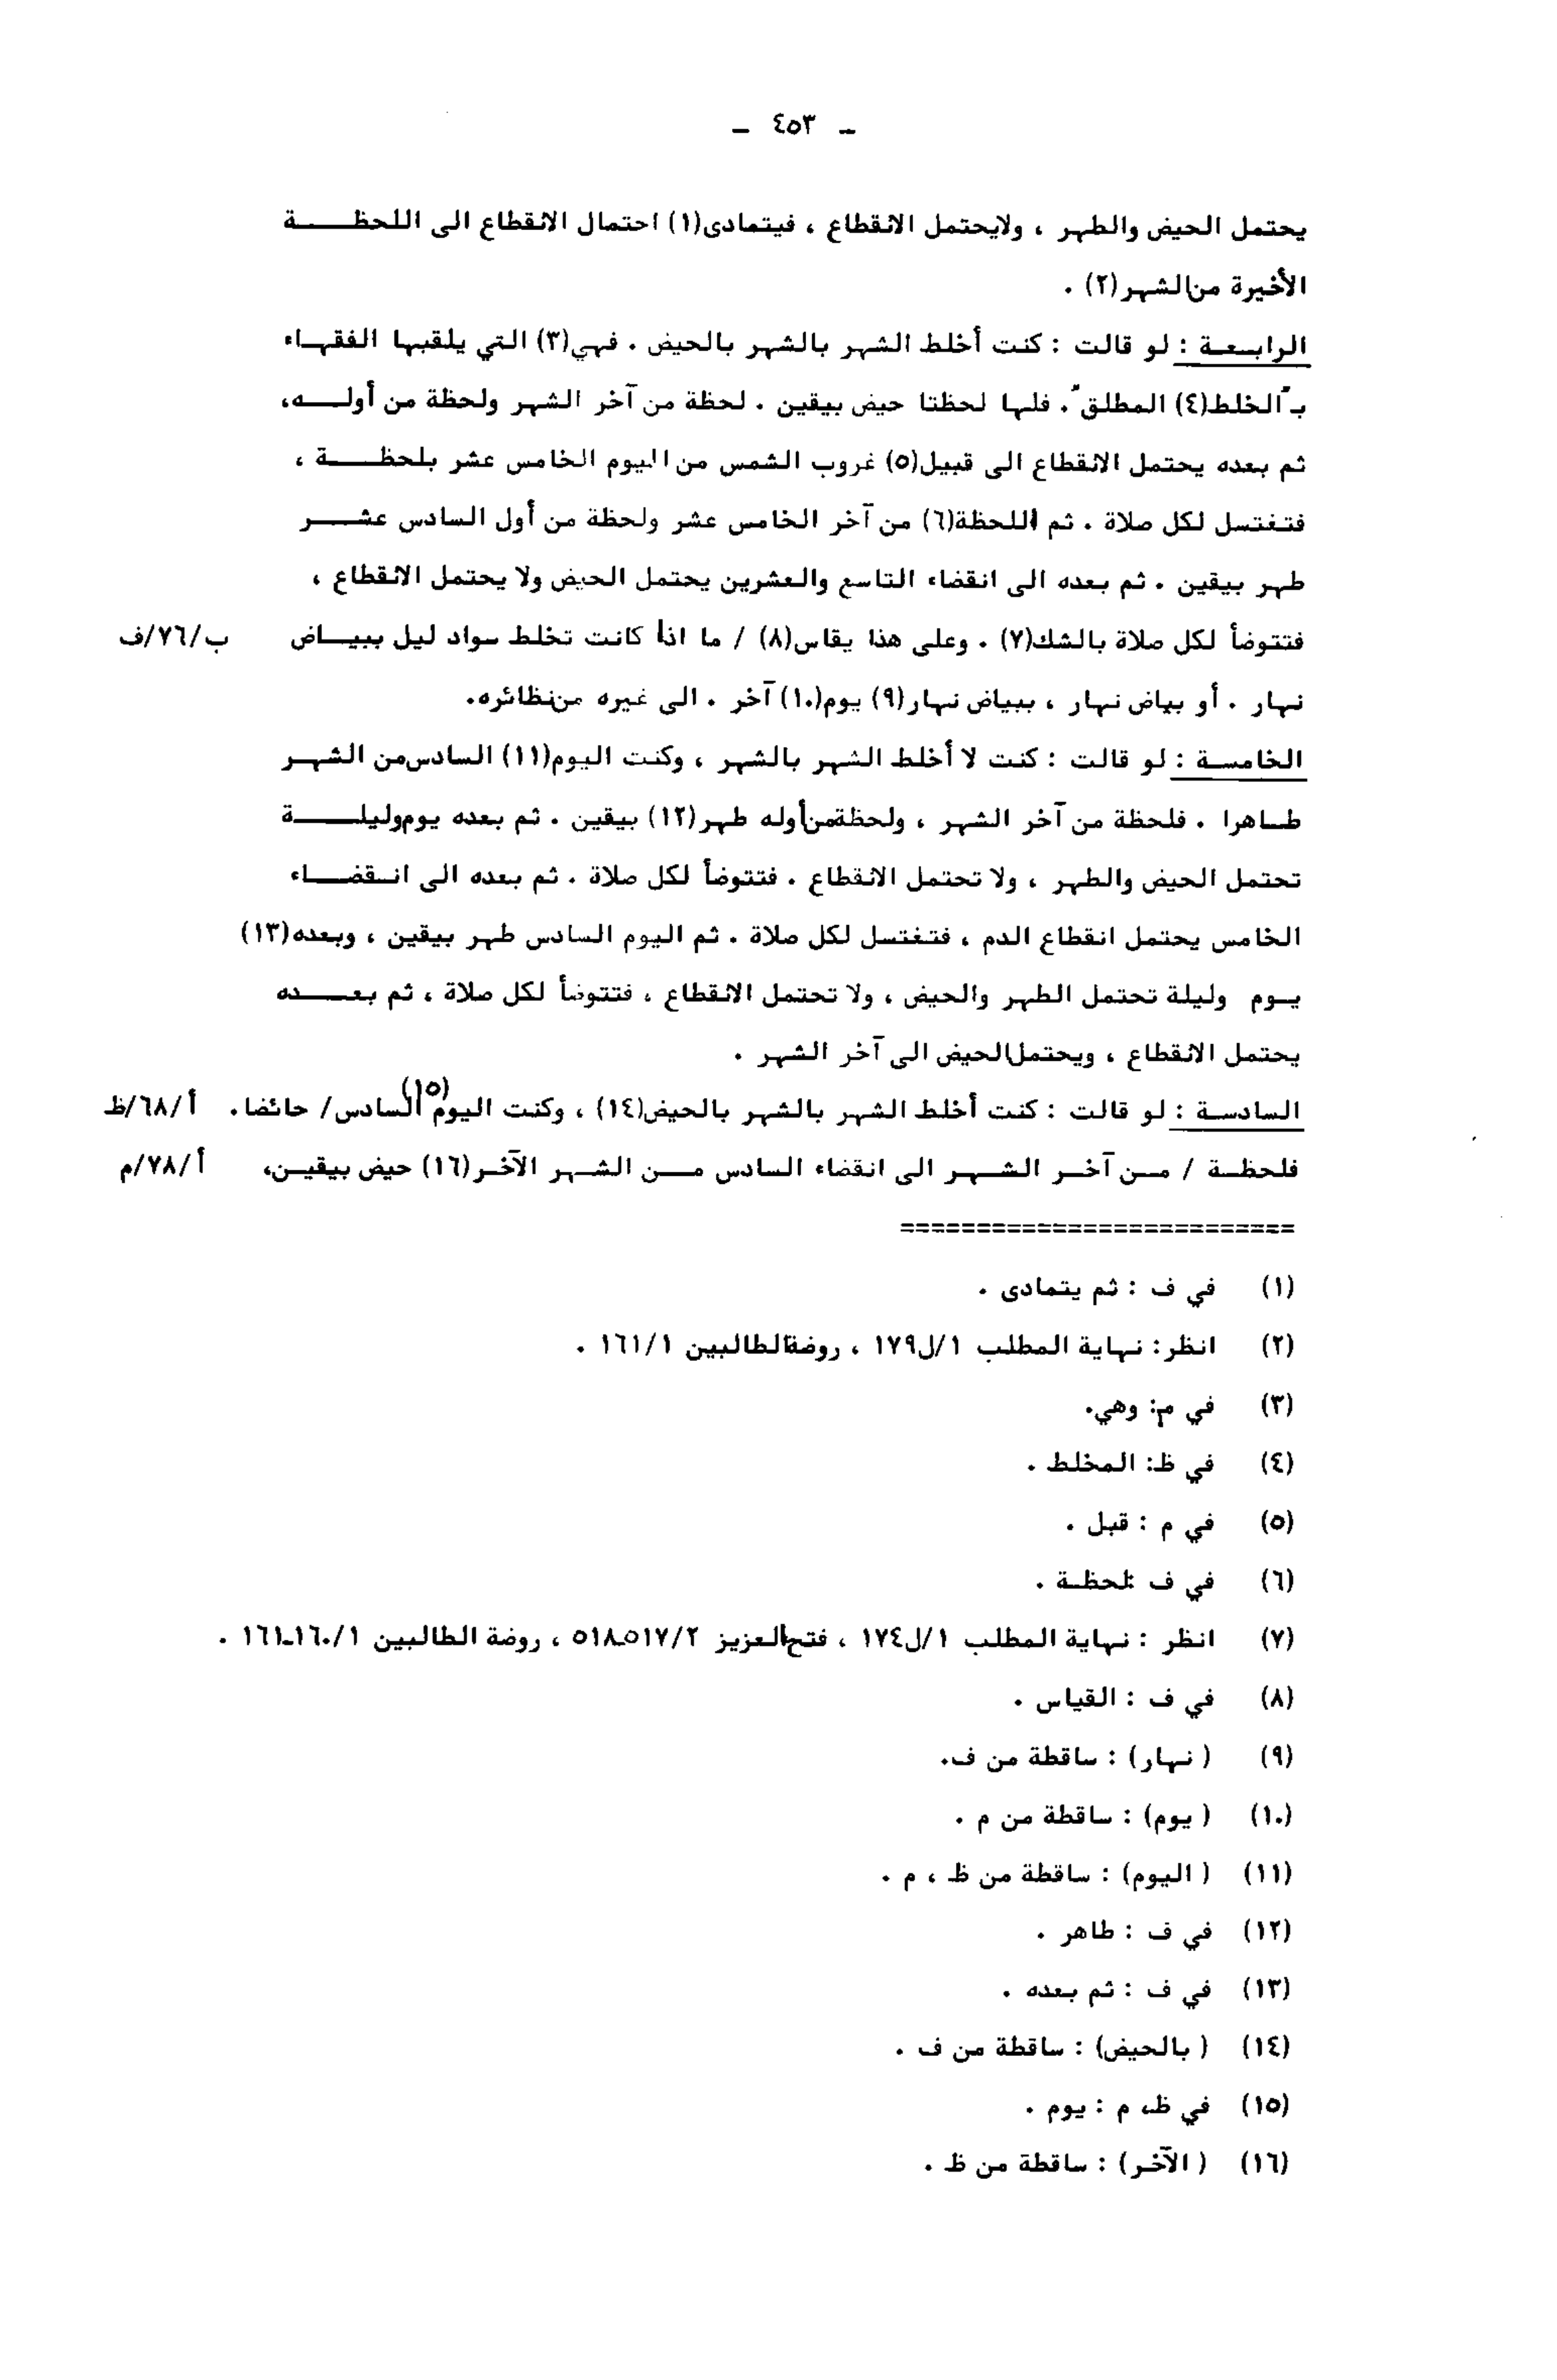 - ٤٥٣ -
يحتمل الحيض والطهر ، ولايحتمل الانقطاع ، فيتمادى(١) احتمال الانقطاع الى اللحظة
الأخيرة من الشهر(٢) .
الرابعة : لو قالت : كنت أخلط الشهر بالشهر بالحيض . فهي(٣) التي يلقبها الفقهاء
بـ"الخلط(٤) المطلق". فلها لحظتا حيض بيقين . لحظة من آخر الشهر ولحظة من أوله،
ثم بعده يحتمل الانقطاع الى قبيل(٥) غروب الشمس من اليوم الخامس عشر بلحظة ،
فتغتسل لكل صلاة . ثم اللحظة(٦) من آخر الخامس عشر ولحظة من أول السادس عشر
طهر بيقين . ثم بعده الى انقضاء التاسع والعشرين يحتمل الحيض ولا يحتمل الانقطاع ،
فتتوضأ لكل صلاة بالشك(٧) . وعلى هذا يقاس(٨) / ما اذا كانت تخلط سواد ليل ببياض ب/٧٦/ف
نهار . أو بياض نهار ، ببياض نهار(٩) يوم(١٠) آخر . الى غيره من نظائره.
الخامسة : لو قالت : كنت لا أخلط الشهر بالشهر ، وكنت اليوم(١١) السادس من الشهر
طاهرا . فلحظة من آخر الشهر ، ولحظة من أوله طهر(١٢) بيقين . ثم بعده يوم وليلة
تحتمل الحيض والطهر ، ولا تحتمل الانقطاع . فتتوضأ لكل صلاة . ثم بعده الى انقضاء
الخامس يحتمل انقطاع الدم ، فتغتسل لكل صلاة . ثم اليوم السادس طهر بيقين ، وبعده(١٣)
يوم وليلة تحتمل الطهر والحيض ، ولا تحتمل الانقطاع ، فتتوضأ لكل صلاة ، ثم بعده
يحتمل الانقطاع ، ويحتمل الحيض الى آخر الشهر .
السادسة : لو قالت : كنت أخلط الشهر بالشهر بالحيض(١٤) ، وكنت اليوم(١٥) السادس/ حائضا. أ/٦٨/ظ
فلحظة / من آخر الشهر الى انقضاء السادس من الشهر الآخر(١٦) حيض بيقين، أ/٧٨/م
==========================
(١) في ف : ثم يتمادى .
(٢) انظر: نهاية المطلب ١/ل١٧٩ ، روضة الطالبين ١/١٦١ .
(٣) في م: وهي.
(٤) في ظ: المخلط .
(٥) في م : قبل .
(٦) في ف : لحظة .
(٧) انظر : نهاية المطلب ١/ل١٧٤ ، فتح العزيز ٢/٥١٧ـ٥١٨ ، روضة الطالبين ١/١٦٠ـ١٦١ .
(٨) في ف : القياس .
(٩) ( نهار) : ساقطة من ف.
(١٠) ( يوم) : ساقطة من م .
(١١) ( اليوم) : ساقطة من ظ ، م .
(١٢) في ف : طاهر .
(١٣) في ف : ثم بعده .
(١٤) ( بالحيض) : ساقطة من ف .
(١٥) في ظ، م : يوم .
(١٦) ( الآخر) : ساقطة من ظ .